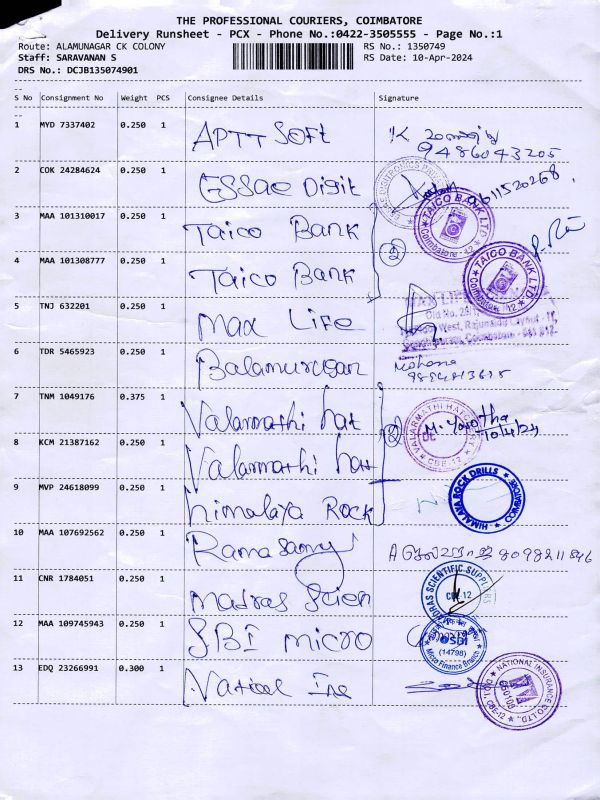 THE PROFESSIONAL COURIERS, COIMBATORE
Delivery Runsheet - PCX - Phone No.:0422-3505555 - Page No.:1
Route: ALAMUNAGAR CK COLONY RS No.: 1350749
Staff: SARAVANAN S RS Date: 10-Apr-2024
DRS No.: DCJB135074901
S No Consignment No Weight PCS Consignee Details Signature
1 MYD 7337402 0.250 1 APTT SOFT
9486043205
2 COK 24284624 0.250 1 ESSae Digit
3 MAA 101310017 0.250 1 Taico Bank TAICO BANK LTD Coimbatore 12
4 MAA 101308777 0.250 1 Taico Bank TAICO BANK LTD Coimbatore 12
5 TNJ 632201 0.250 1 Max Life MAX LIFE
6 TDR 5465923 0.250 1 Balamurugan Mohana
7 TNM 1049176 0.375 1 Valarmathi hat VALARMATHI HATCH CBE-12
10/4/24
8 KCM 21387162 0.250 1 Valarmathi hat
9 MVP 24618099 0.250 1 himalaya Rock HIMALAYA ROCK DRILLS COIMBATORE
10 MAA 107692562 0.250 1 Ramasamy
11 CNR 1784051 0.250 1 madras Scien MADRAS SCIENTIFIC SUPPLIERS CBE 12
12 MAA 109745943 0.250 1 SBI micro SBI (14798) Micro Finance Branch
13 EDQ 23266991 0.300 1 National Ins NATIONAL INSURANCE CO LTD. CBE-12